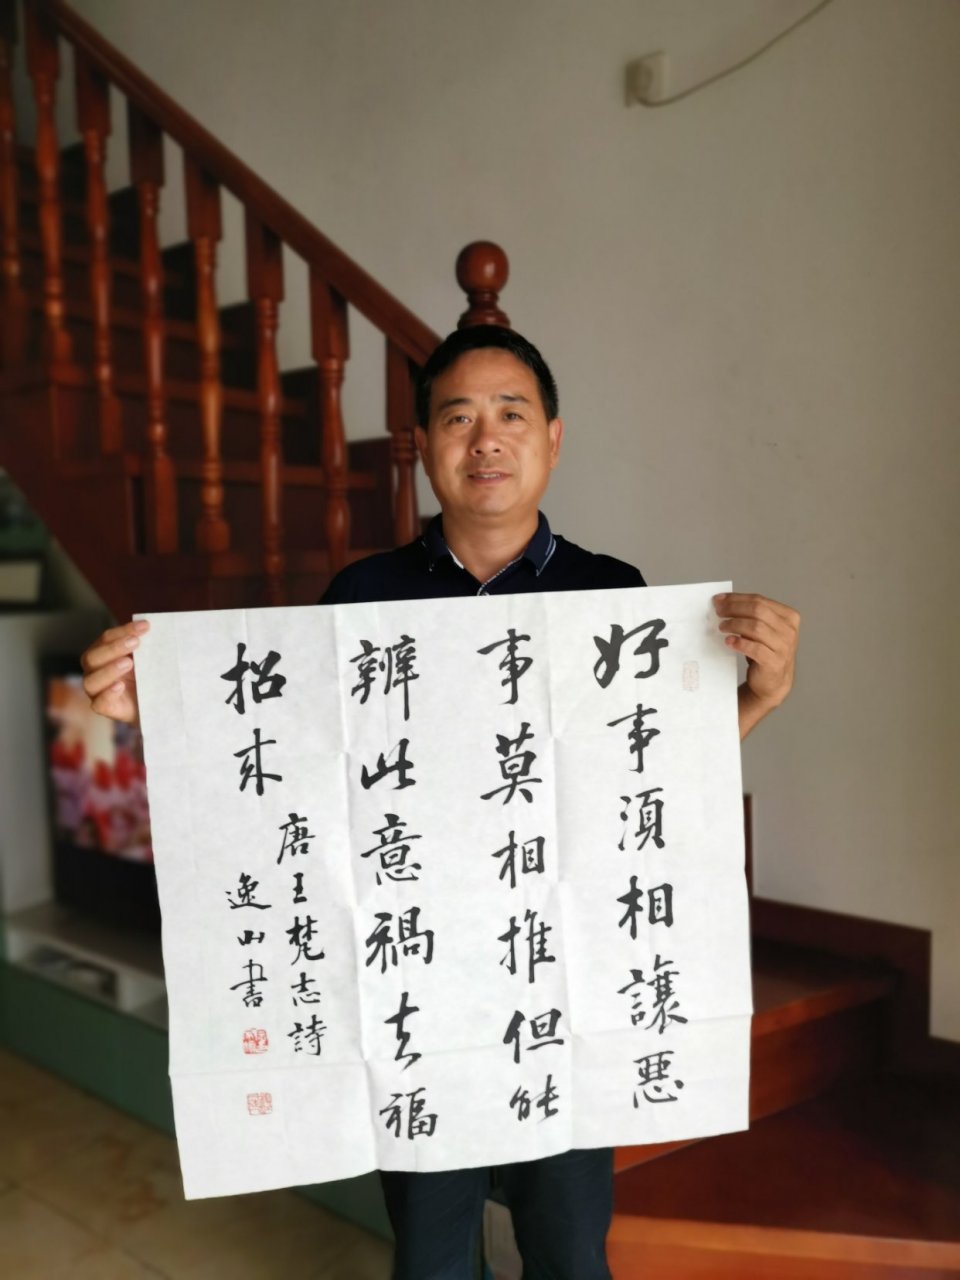 好事須相讓惡
事莫相推但能
辨此意禍去福
招来
唐王梵志詩
逸山書